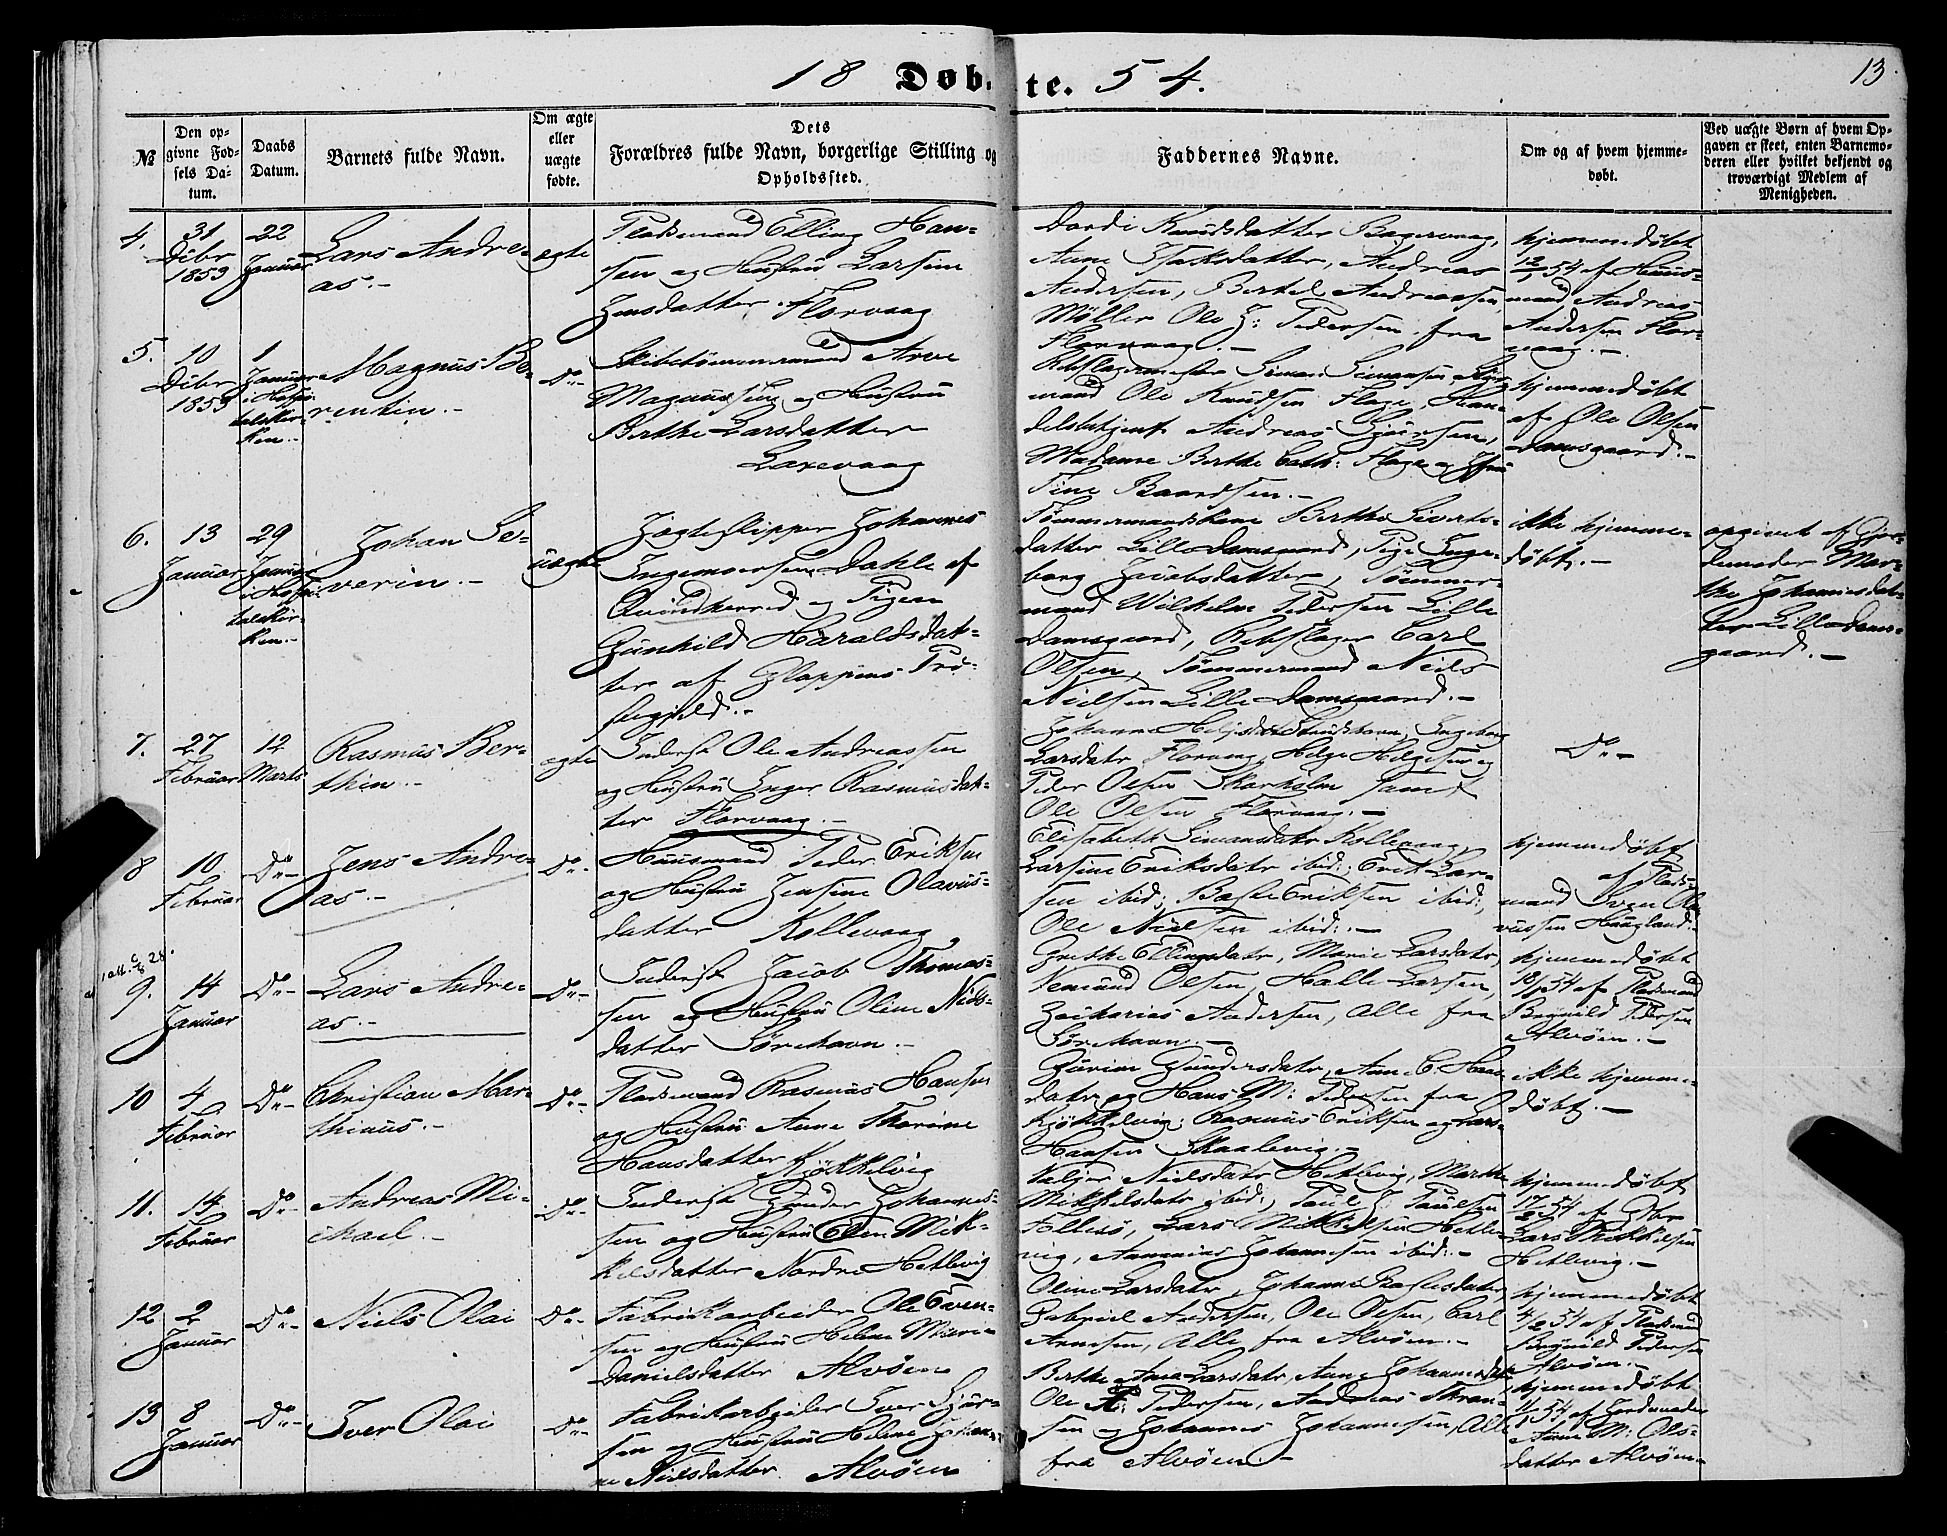 18 Døbte. 54.
13
№
Den opgivne Fødsels Datum.
Daabs Datum.
Barnets fulde Navn.
Om ægte eller uægte fødte.
Dets Forældres fulde Navn, borgerlige Stilling og Opholdssted.
Faddernes Navne.
Om og af hvem hjemmedøbt.
Ved uægte Børn af hvem Opgaven er skeet, enten Barnemoderen eller hvilket bekjendt og troværdigt Medlem af Menigheden.
4.
31 Debr 1853
22 Januar
Lars Andre-
as.-
ægte
Pladsmand Elling Han-
sen og Hustru Larsine
Jensdatter Florvaag
Dordi Knudsdatter
Anne Isaksdatter, Andreas
Andersen, Bertel Andreassen,
Møller Ole J: Pedersen fra
Florvaag.-
hjemmedøbt
12/1 54 af Huus-
mand Andreas
Andersen Flor-
vaag.-
5.
10 Debr 1853
1 Januar i Hospitalskirken.-
Magnus Be-
rentin.-
Do-
Skibstømmermand Arve
Magnussen og Hustru
Berthe Larsdatter
Laxevaag
Rebslagermester Simon Simonsen, Styr-
mand Ole Knudsen Flage, Han-
delsbetjent Andreas
Madame Berthe Cath: Flage og Jfru
Sine Baardsen.-
hjemmedøbt
af Ole Olsen
Damsgaard.-
6.
13 Januar
29 Januar i Hospitalskirken.-
Johan Se-
verin.-
uægte
Jagteskipper Johannes
Ingemorsen Dahle af
Qvindherred og Pigen
Gunhild Haraldsdat-
ter af Gloppens Præ-
stegjeld.-
Tømmermandskone Berthe Siverts-
datter Lille Damsgaard, Pige Inge-
borg Jacobsdatter, Tømmer-
mand Wilhelm Pedersen Lille
Damsgaard, Rebslager Carl
Olsen, Tømmermand Niels
Nielsen Lille Damsgaard.-
ikke hjemme-
døbt.-
opgivet af Gjor-
demoder Mar-
the Johannesdat-
ter Lille Dams-
gaard.-
7.
27 Februar
12 Marts
Rasmus Ber-
thin.-
ægte
Inderst Ole Andreassen
og Hustru Inger Rasmusdat-
ter Florvaag.-
Johanne Ingeborg
Larsdatr Florvaag, Helge Helgesen og
Peder Olsen Skarholm samt
Ole Olsen Florvaag.-
Do-
8
10 Februar
Do-
Jens Andre-
as.-
Do-
Huusmand Peder Eriksen
og Hustru Jensine Olavus-
datter Kollevaag
Elisabeth Simonsdatr Kollevaag,
Larsine Eriksdatr ibid:, Erik Lar-
sen ibid:, Eriksen ibid:,
Ole Nielsen ibid:.-
hjemmedøbt
af Plads-
mand Sven Ola-
vussen Haagland.-
9.
14 Januar
Do-
Lars Andre-
as.-
Do-
Inderst Jacob Thomas-
sen og Hustru Oline Niels-
datter Sørehavn.-
Grethe Ellingsdatr, Marie Larsdatr,
Nemund Olsen, Halle Larsen,
Zacharias Andersen, Alle fra
Sørehavn.-
hjemmedøbt
54 af Pladsmand
Pedersen
Alvøen.-
10
4 Februar
Do-
Christian Mar-
thinus.-
Do-
Pladsmand Rasmus Hansen
og Hustru Anne Thorine
Hansdatter Kjøkkelvig
Gurine Gundersdatr, Anne C. Hans-
datr og Hans M: Pedersen fra
Kjøkkelvig, Rasmus Eriksen og Lars
Hansen Skaalevig.-
ikke hjemme-
døbt.-
11.
14 Februar
Do-
Andreas Mi-
chael.-
Do-
Inderst Gunder Johannes-
sen og Hustru Elen Mik-
kelsdatter Nordre Hetlevig
Nielsdatr Hetlevig, Marthe
Mikkelsdatr ibid:, Poul J. Poulsen
Follesø, Lars Mikkelsen Hetle-
vig, Johannesen ibid:.-
hjemmedøbt
17/2 54 af Gbr
Lars Mikkelsen
Hetlevig.-
12
2 Januar
Do-
Niels Olai
Do-
Fabrikarbeider Ole Even-
sen og Hustru Helene Marie
Danielsdatter Alvøen
Oline Larsdatr, Johanne
Gabriel Andersen, Ole Olsen, Carl
Arnesen, Alle fra Alvøen.-
hjemmedøbt
4/2 54 af Pladsmand
Pedersen
Alvøen.-
13
8 Januar
Do-
Iver Olai
Do-
Fabrikarbeider Iver Sjur-
sen og Hustru Helene Johan-
ne Nielsdatter Alvøen
Berthe Ana Larsdatr, Anne Johannesdatr,
Ole Pedersen, Andreas
sen og Johannes Johannesen, Alle
fra Alvøen.-
hjemmedøbt
54 af Jordemoder
Anne M: Ols-
datter Alvøen-